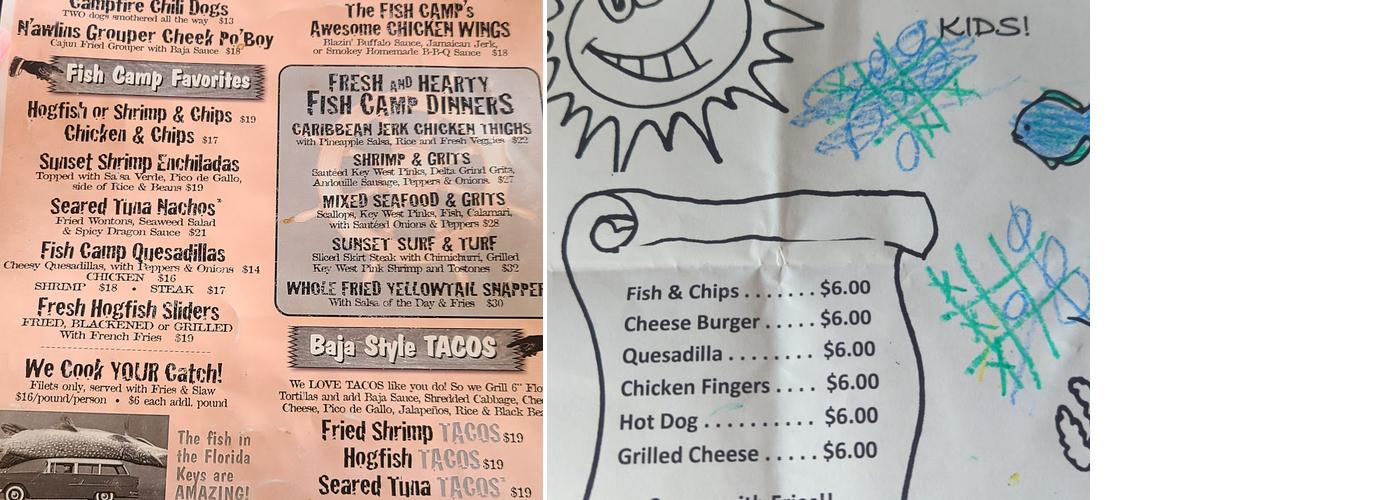 Campfire Chili Dogs
TWO dogs smothered all the way $13
N'awlins Grouper Cheek Po'Boy
Cajun Fried Grouper with Baja Sauce $18
Fish Camp Favorites
Hogfish or Shrimp & Chips $19
Chicken & Chips $17
Sunset Shrimp Enchiladas
Topped with Salsa Verde, Pico de Gallo,
side of Rice & Beans $19
Seared Tuna Nachos*
Fried Wontons, Seaweed Salad
& Spicy Dragon Sauce $21
Fish Camp Quesadillas
Cheesy Quesadillas, with Peppers & Onions $14
CHICKEN $16
SHRIMP $18 • STEAK $17
Fresh Hogfish Sliders
FRIED, BLACKENED or GRILLED
With French Fries $19
We Cook YOUR Catch!
Filets only, served with Fries & Slaw
$16/pound/person • $6 each addl. pound
The fish in
the Florida
Keys are
AMAZING!
The FISH CAMP's
Awesome CHICKEN WINGS
Blazin' Buffalo Sauce, Jamaican Jerk,
or Smokey Homemade B-B-Q Sauce $18
FRESH AND HEARTY
FISH CAMP DINNERS
CARIBBEAN JERK CHICKEN THIGHS
with Pineapple Salsa, Rice and Fresh Veggies $22
SHRIMP & GRITS
Sautéed Key West Pinks, Delta Grind Grits,
Andouille Sausage, Peppers & Onions $27
MIXED SEAFOOD & GRITS
Scallops, Key West Pinks, Fish, Calamari,
with Sautéed Onions & Peppers $28
SUNSET SURF & TURF
Sliced Skirt Steak with Chimichurri, Grilled
Key West Pink Shrimp and Tostones $32
WHOLE FRIED YELLOWTAIL SNAPPER
With Salsa of the Day & Fries $30
Baja Style TACOS
We LOVE TACOS like you do! So we Grill 6" Flo
Tortillas and add Baja Sauce, Shredded Cabbage, Che
Cheese, Pico de Gallo, Jalapeños, Rice & Black Bea
Fried Shrimp TACOS $19
Hogfish TACOS $19
Seared Tuna TACOS* $19
KIDS!
Fish & Chips ....... $6.00
Cheese Burger ..... $6.00
Quesadilla ........ $6.00
Chicken Fingers .... $6.00
Hot Dog .......... $6.00
Grilled Cheese ..... $6.00